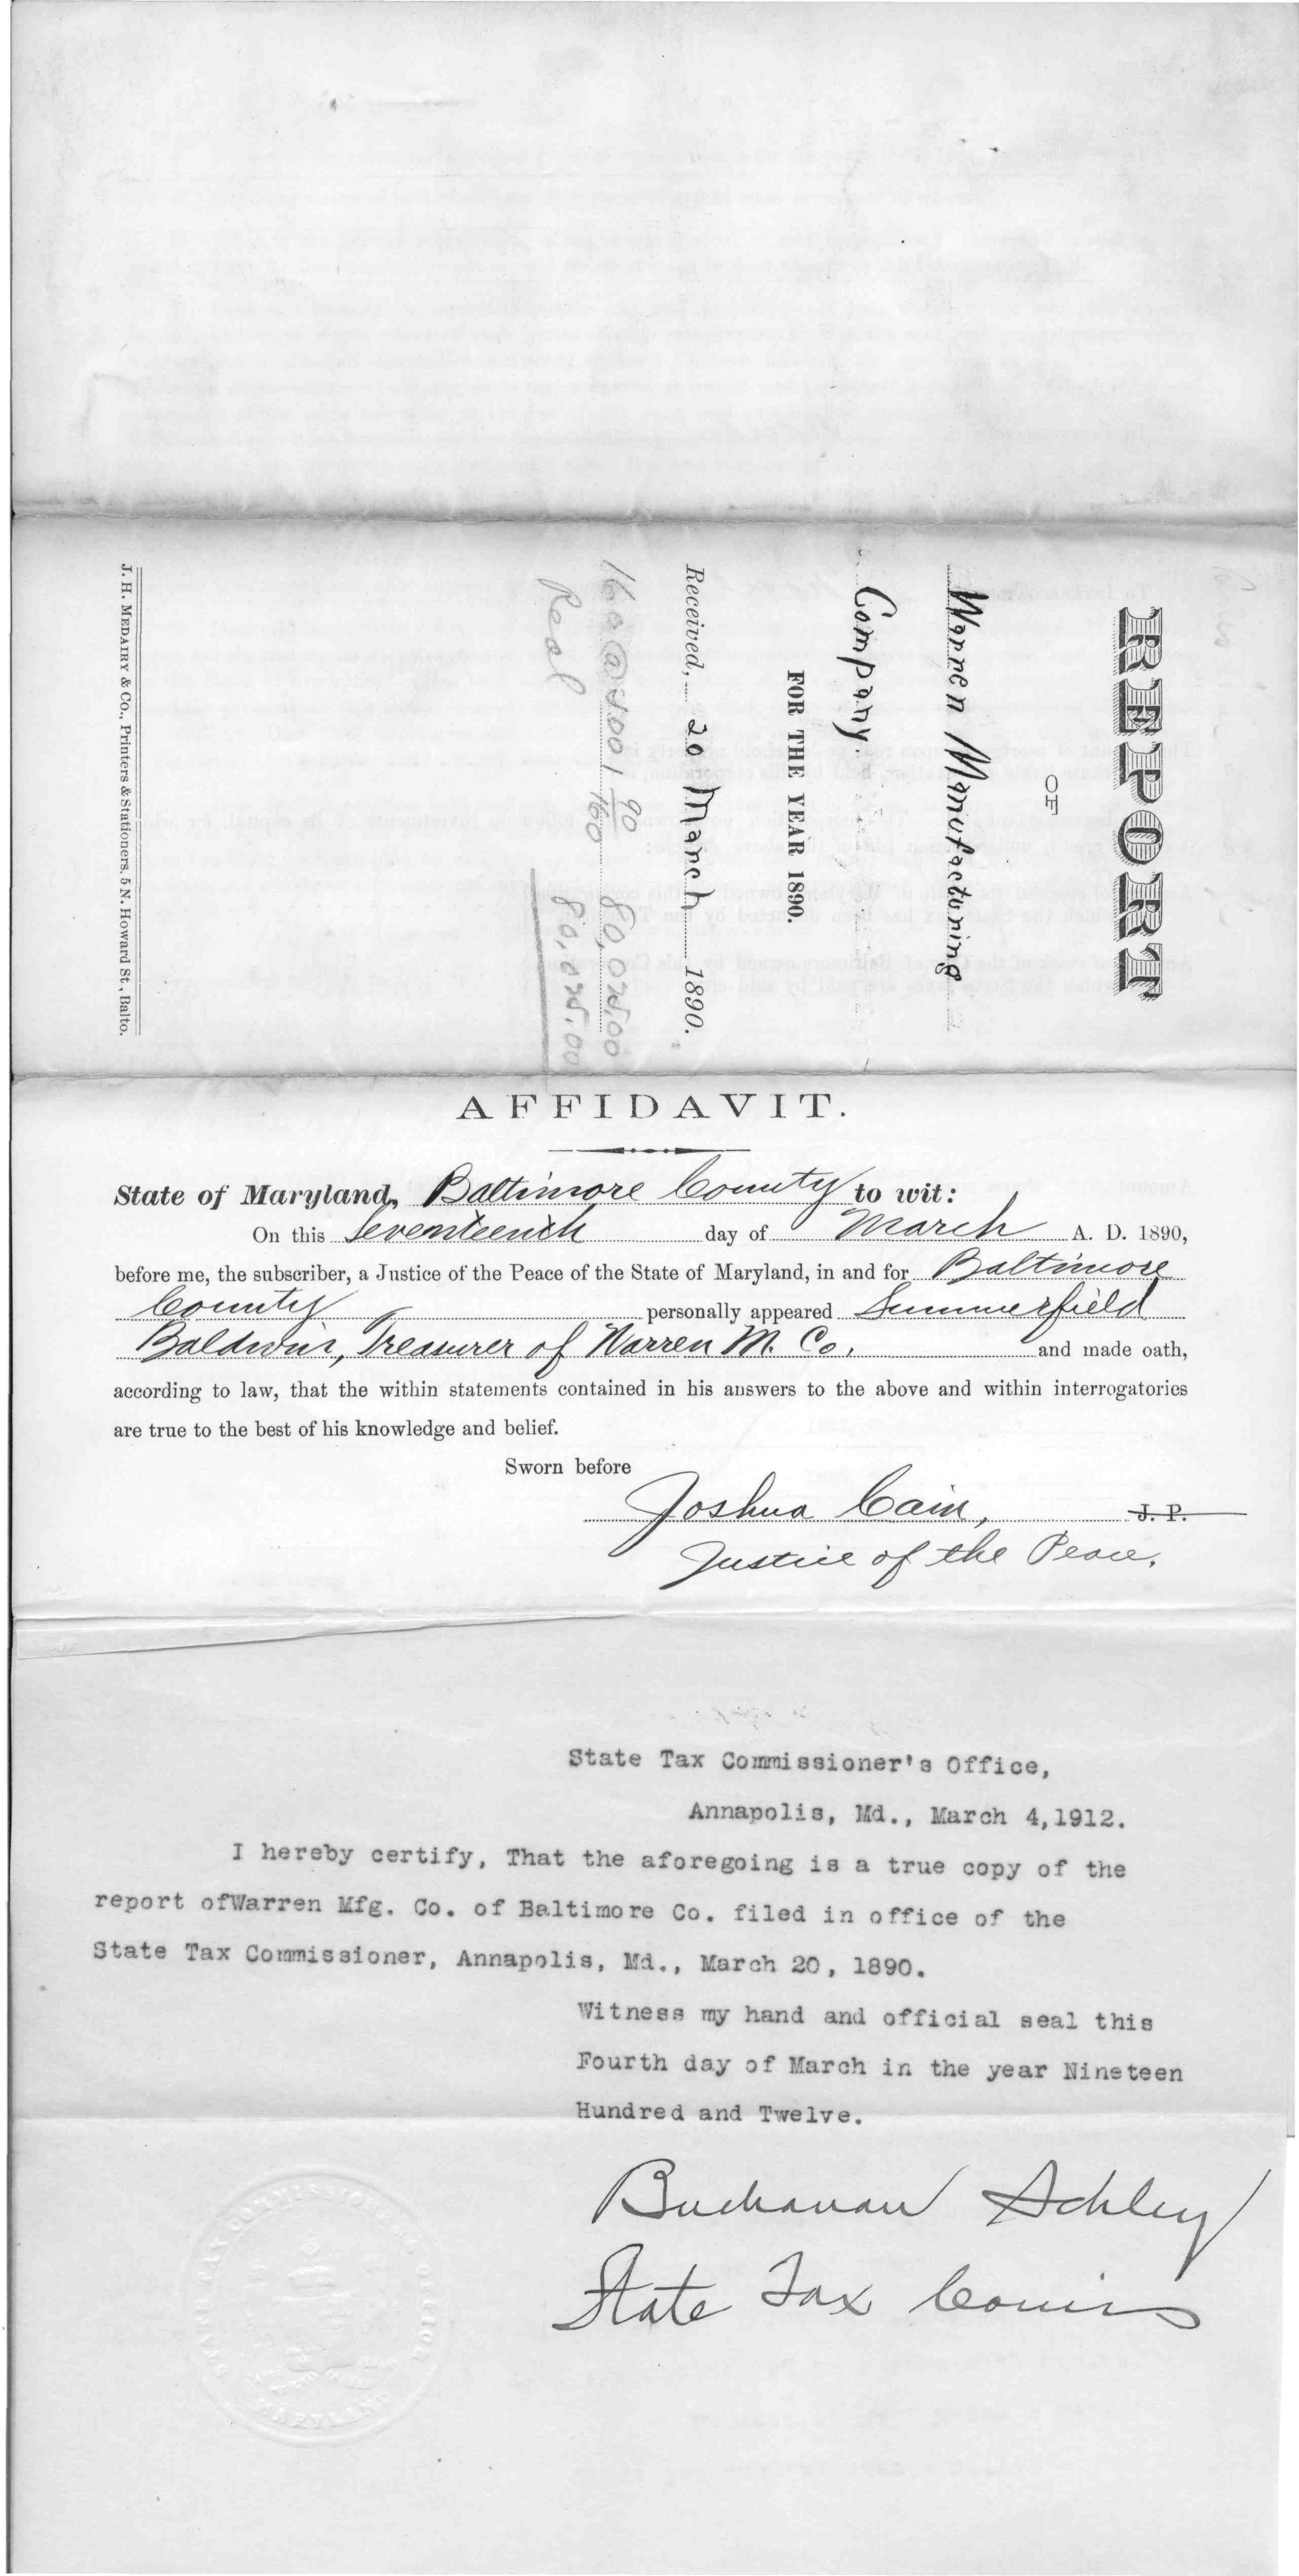 REPORT
OF
Warren Manufacturing
Company
FOR THE YEAR 1890.
Received, 20 March 1890.
90 80,075.00
Real 160 80,075.00
J. H. MEDAIRY & Co., Printers & Stationers, 5 N. Howard St., Balto.
AFFIDAVIT.
State of Maryland, Baltimore County to wit:
On this Seventeenth day of March A. D. 1890,
before me, the subscriber, a Justice of the Peace of the State of Maryland, in and for Baltimore
County personally appeared Summerfield
Baldwin, Treasurer of Warren M. Co. and made oath,
according to law, that the within statements contained in his answers to the above and within interrogatories
are true to the best of his knowledge and belief.
Sworn before
Joshua Cain, J. P.
Justice of the Peace.
State Tax Commissioner's Office,
Annapolis, Md., March 4,1912.
I hereby certify, That the aforegoing is a true copy of the
report ofWarren Mfg. Co. of Baltimore Co. filed in office of the
State Tax Commissioner, Annapolis, Md., March 20, 1890.
Witness my hand and official seal this
Fourth day of March in the year Nineteen
Hundred and Twelve.
Buchanan Schley
State Tax Comr
STATE TAX COMMISSIONER'S OFFICE
MARYLAND